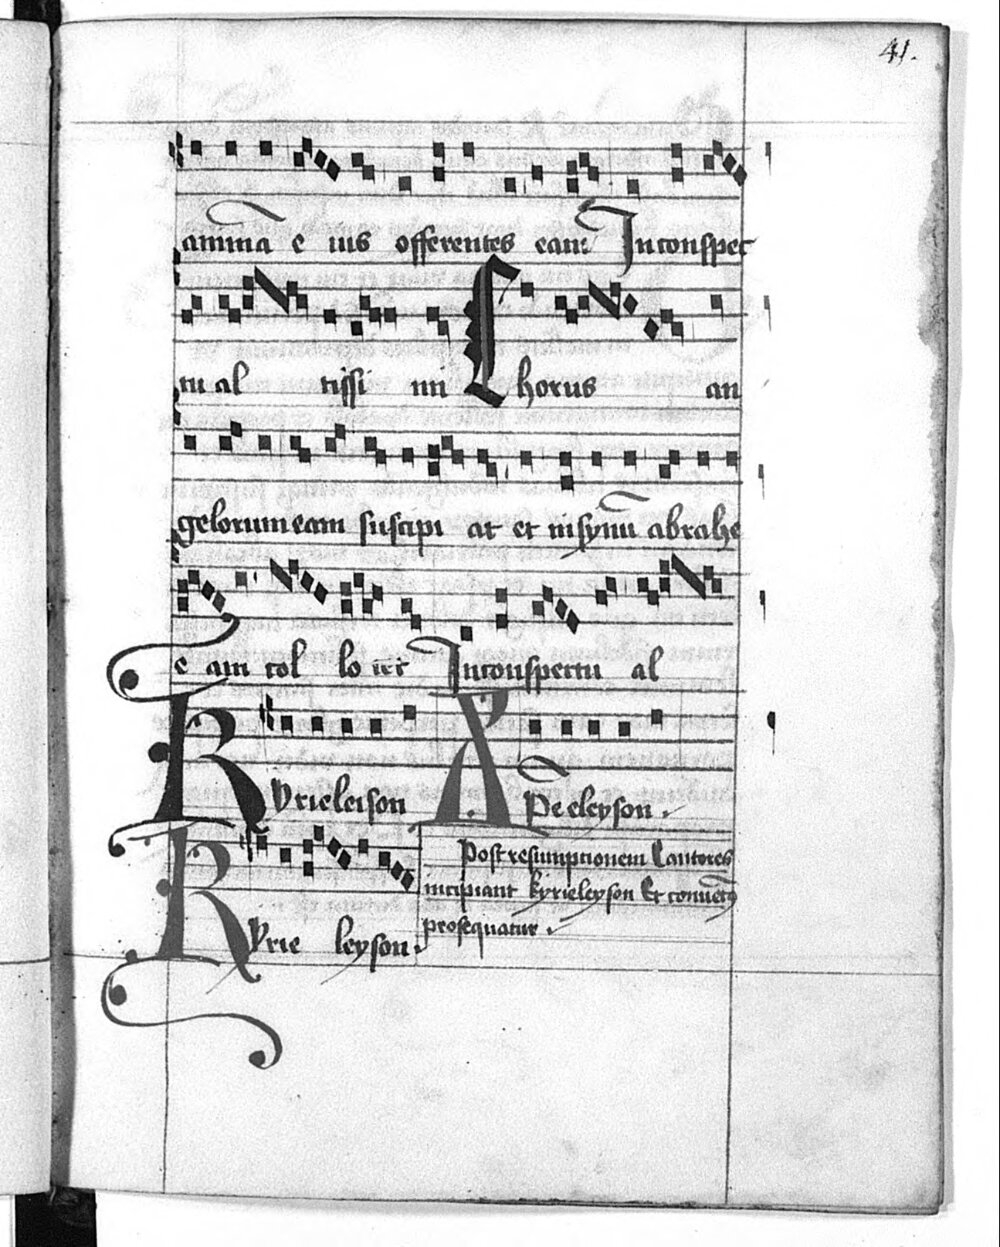 41.
animā e ius offerentes eam Inconspec
tu al tissi mi Chorus an
gelorum eam suscipi at et insynū abrahe
e am col lo cet Inconspectu al
Kyrieleison Xp̄e eleyson.
Kyrie leyson.
Post resumptionem Cantores
incipiant kyrieleyson Et
prosequatur.